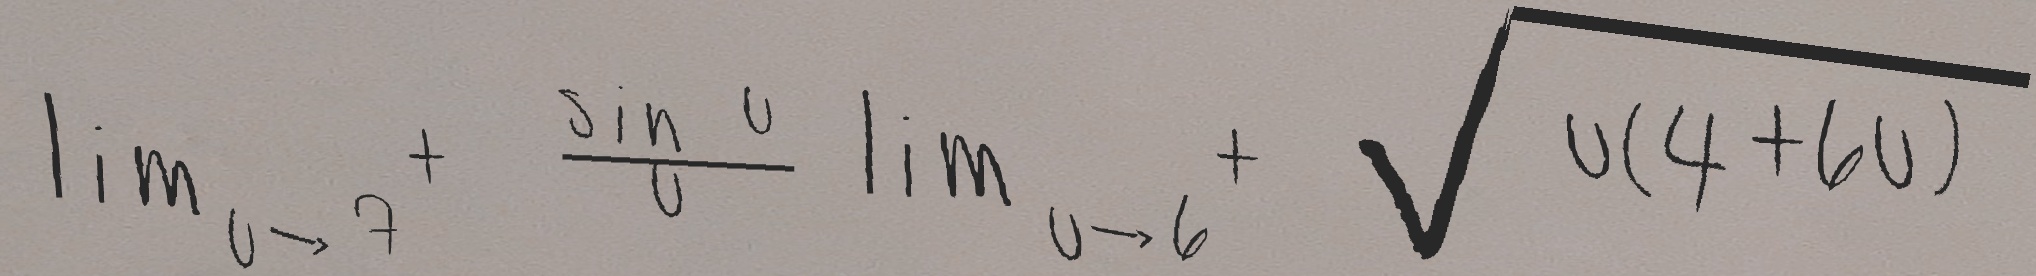 \lim_{u \to 7^+} \frac{\sin u}{u} \lim_{u \to 6^+} \sqrt{u(4+6u)}